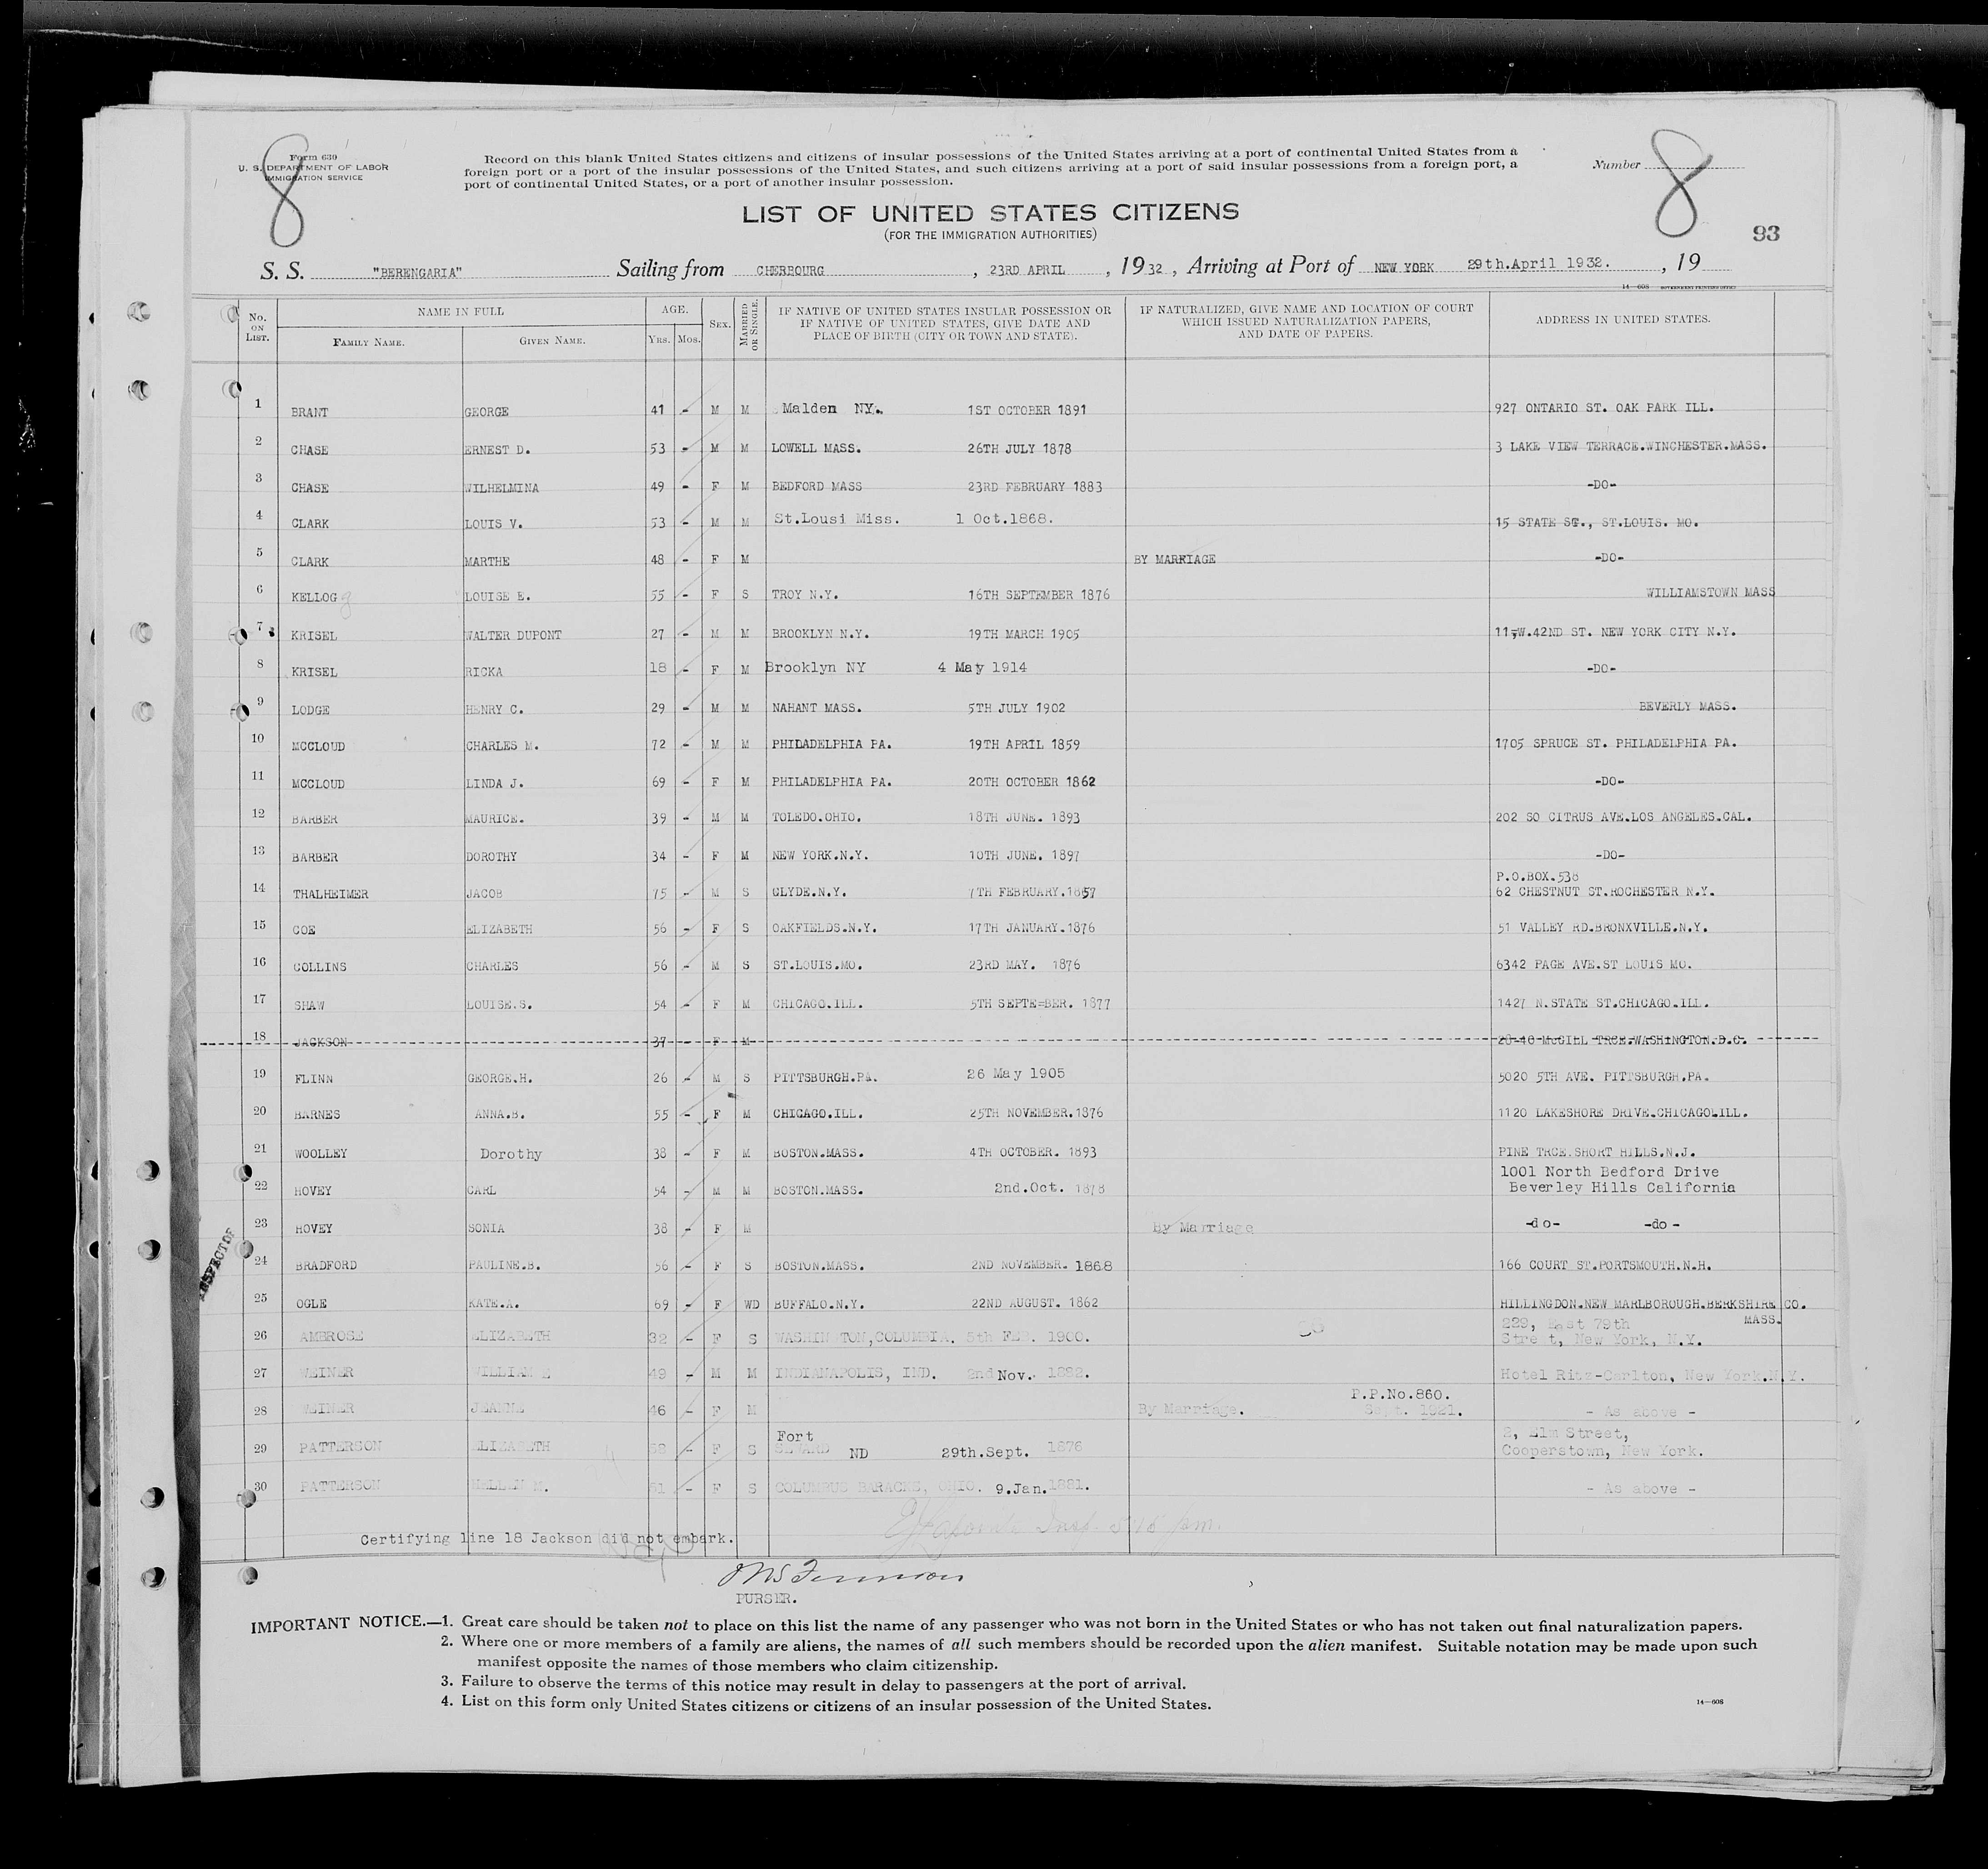 8
8
Form 630
U. S. DEPARTMENT OF LABOR
IMMIGRATION SERVICE
Record on this blank United States citizens and citizens of insular possessions of the United States arriving at a port of continental United States from a
foreign port or a port of the insular possessions of the United States, and such citizens arriving at a port of said insular possessions from a foreign port, a
port of continental United States, or a port of another insular possession.
Number
LIST OF UNITED STATES CITIZENS
(FOR THE IMMIGRATION AUTHORITIES)
93
S. S. "BERENGARIA" Sailing from CHERBOURG , 23RD APRIL , 1932 , Arriving at Port of NEW YORK 29th.April 1932. , 19
14—608 GOVERNMENT PRINTING OFFICE
No. ON LIST. NAME IN FULL AGE. SEX. MARRIED OR SINGLE. IF NATIVE OF UNITED STATES INSULAR POSSESSION OR IF NATIVE OF UNITED STATES, GIVE DATE AND PLACE OF BIRTH (CITY OR TOWN AND STATE). IF NATURALIZED, GIVE NAME AND LOCATION OF COURT WHICH ISSUED NATURALIZATION PAPERS, AND DATE OF PAPERS. ADDRESS IN UNITED STATES.
FAMILY NAME. GIVEN NAME. YRS. MOS.
1 BRANT GEORGE 41 - M M Malden NY. 1ST OCTOBER 1891 927 ONTARIO ST. OAK PARK ILL.
2 CHASE ERNEST D. 53 - M M LOWELL MASS. 26TH JULY 1878 3 LAKE VIEW TERRACE.WINCHESTER.MASS.
3 CHASE WILHELMINA 49 - F M BEDFORD MASS 23RD FEBRUARY 1883 -DO-
4 CLARK LOUIS V. 53 - M M St.Lousi Miss. 1 Oct.1868. 15 STATE ST., ST.LOUIS. MO.
5 CLARK MARTHE 48 - F M BY MARRIAGE -DO-
6 KELLOGg LOUISE E. 55 - F S TROY N.Y. 16TH SEPTEMBER 1876 WILLIAMSTOWN MASS
7 KRISEL WALTER DUPONT 27 - M M BROOKLYN N.Y. 19TH MARCH 1905 11,W.42ND ST. NEW YORK CITY N.Y.
8 KRISEL RICKA 18 - F M Brooklyn NY 4 May 1914 -DO-
9 LODGE HENRY C. 29 - M M NAHANT MASS. 5TH JULY 1902 BEVERLY MASS.
10 MCCLOUD CHARLES M. 72 - M M PHILADELPHIA PA. 19TH APRIL 1859 1705 SPRUCE ST. PHILADELPHIA PA.
11 MCCLOUD LINDA J. 69 - F M PHILADELPHIA PA. 20TH OCTOBER 1862 -DO-
12 BARBER MAURICE. 39 - M M TOLEDO.OHIO. 18TH JUNE. 1893 202 SO CITRUS AVE.LOS ANGELES.CAL.
13 BARBER DOROTHY 34 - F M NEW YORK.N.Y. 10TH JUNE. 1897 -DO-
P.O.BOX.538
14 THALHEIMER JACOB 75 - M S CLYDE.N.Y. 7TH FEBRUARY.1857 62 CHESTNUT ST.ROCHESTER N.Y.
15 COE ELIZABETH 56 - F S OAKFIELDS.N.Y. 17TH JANUARY.1876 51 VALLEY RD.BRONXVILLE.N.Y.
16 COLLINS CHARLES 56 - M S ST.LOUIS.MO. 23RD MAY. 1876 6342 PAGE AVE.ST LOUIS MO.
17 SHAW LOUISE.S. 54 - F M CHICAGO.ILL. 5TH SEPTE=BER. 1877 1427 N.STATE ST.CHICAGO.ILL.
18 JACKSON 37 - F M 28-40 McGILL TRCE.WASHINGTON.D.C.
19 FLINN GEORGE.H. 26 - M S PITTSBURGH.PA. 26 May 1905 5020 5TH AVE. PITTSBURGH.PA.
20 BARNES ANNA.B. 55 - F M CHICAGO.ILL. 25TH NOVEMBER.1876 1120 LAKESHORE DRIVE.CHICAGO.ILL.
21 WOOLLEY Dorothy 38 - F M BOSTON.MASS. 4TH OCTOBER. 1893 PINE TRCE.SHORT HILLS.N.J.
1001 North Bedford Drive
22 HOVEY CARL 54 - M M BOSTON.MASS. 2nd.Oct. 1878 Beverley Hills California
23 HOVEY SONIA 38 - F M By Marriage -do- -do-
24 BRADFORD PAULINE.B. 56 - F S BOSTON.MASS. 2ND NOVEMBER. 1868 166 COURT ST.PORTSMOUTH.N.H.
25 OGLE KATE.A. 69 - F WD BUFFALO.N.Y. 22ND AUGUST. 1862 HILLINGDON.NEW MARLBOROUGH.BERKSHIRE CO.
MASS.
229, East 79th
26 AMBROSE ELIZABETH 32 - F S WASHINGTON,COLUMBIA. 5th FEB. 1900. Street, New York, N.Y.
27 WEINER WILLIAM E 49 - M M INDIANAPOLIS, IND. 2nd Nov. 1882. Hotel Ritz-Carlton, New York.N.Y.
P.P.No.860.
28 WEINER JEANNE 46 - F M By Marriage. Sept. 1921. - As above -
Fort 2, Elm Street,
29 PATTERSON ELIZABETH - F S SEWARD ND 29th.Sept. 1876 Cooperstown, New York.
30 PATTERSON HELLEN M. 51 - F S COLUMBUS BARACKS, OHIO. 9.Jan.1881. - As above -
Certifying line 18 Jackson did not embark.
PURSER.
INSPECTOR
IMPORTANT NOTICE.—1. Great care should be taken not to place on this list the name of any passenger who was not born in the United States or who has not taken out final naturalization papers.
2. Where one or more members of a family are aliens, the names of all such members should be recorded upon the alien manifest. Suitable notation may be made upon such
manifest opposite the names of those members who claim citizenship.
3. Failure to observe the terms of this notice may result in delay to passengers at the port of arrival.
4. List on this form only United States citizens or citizens of an insular possession of the United States.
14—608